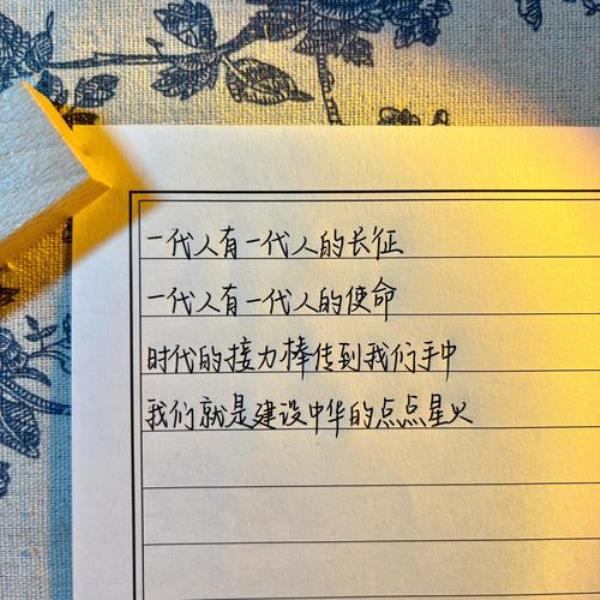 一代人有一代人的长征
一代人有一代人的使命
时代的接力棒传到我们手中
我们就是建设中华的点点星火